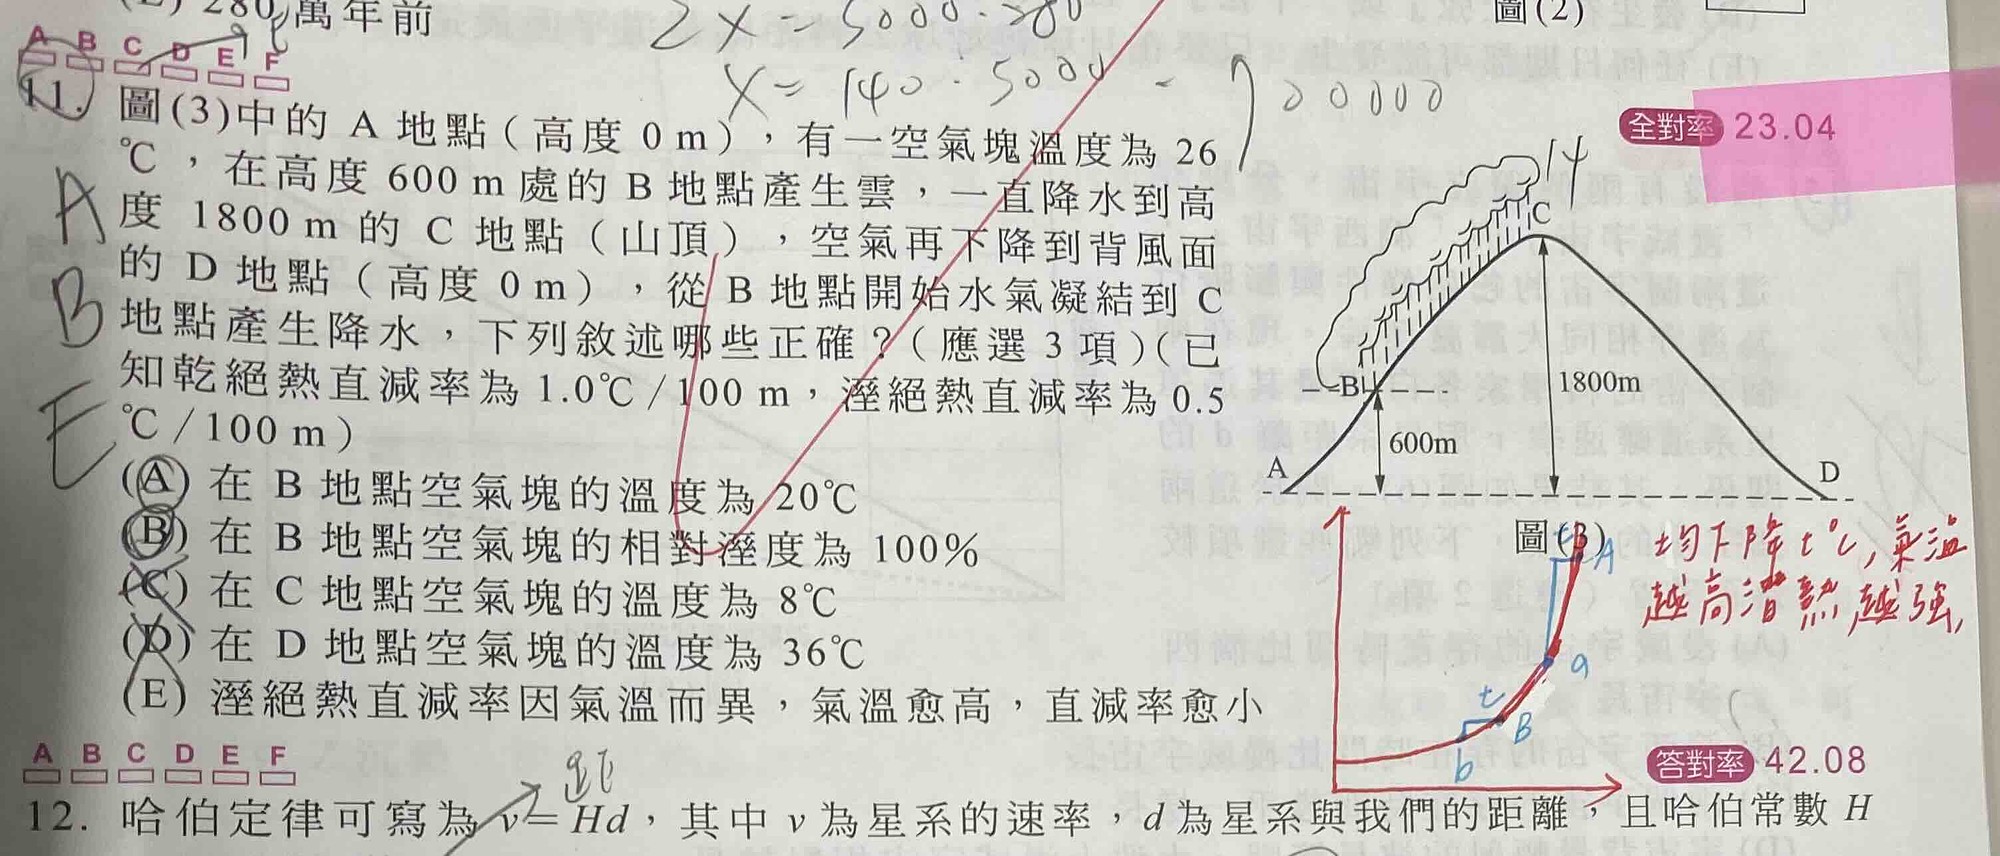 280萬年前
2x = 5000.280
x = 140.5000 = 700000
圖(2)
A B C D E F
全對率 23.04
11. 圖(3)中的 A 地點(高度 0 m),有一空氣塊溫度為 26
℃,在高度 600 m 處的 B 地點產生雲,一直降水到高
度 1800 m 的 C 地點(山頂),空氣再下降到背風面
的 D 地點(高度 0 m),從 B 地點開始水氣凝結到 C
地點產生降水,下列敘述哪些正確?(應選 3 項)(已
知乾絕熱直減率為 1.0℃/100 m,溼絕熱直減率為 0.5
℃/100 m)
A
B
E
(A) 在 B 地點空氣塊的溫度為 20℃
(B) 在 B 地點空氣塊的相對溼度為 100%
(C) 在 C 地點空氣塊的溫度為 8℃
(D) 在 D 地點空氣塊的溫度為 36℃
(E) 溼絕熱直減率因氣溫而異,氣溫愈高,直減率愈小
14
C
B
1800m
600m
A
D
圖(3)
t A
a
t B
b
均下降t℃,氣溫
越高潛熱越強,
A B C D E F
答對率 42.08
12. 哈伯定律可寫為 v=Hd,其中 v 為星系的速率,d 為星系與我們的距離,且哈伯常數 H